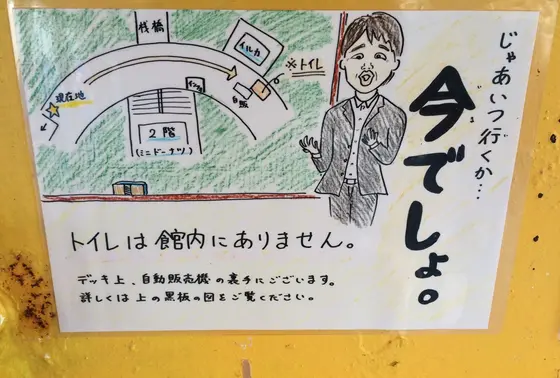 じゃあいつ行くか…
今でしょ。
桟橋
イルカ
※トイレ
現在地
自販
2階
(ミニドーナツ)
トイレは館内にありません。
デッキ上、自動販売機の裏手にございます。
詳しくは上の黒板の図をご覧ください。